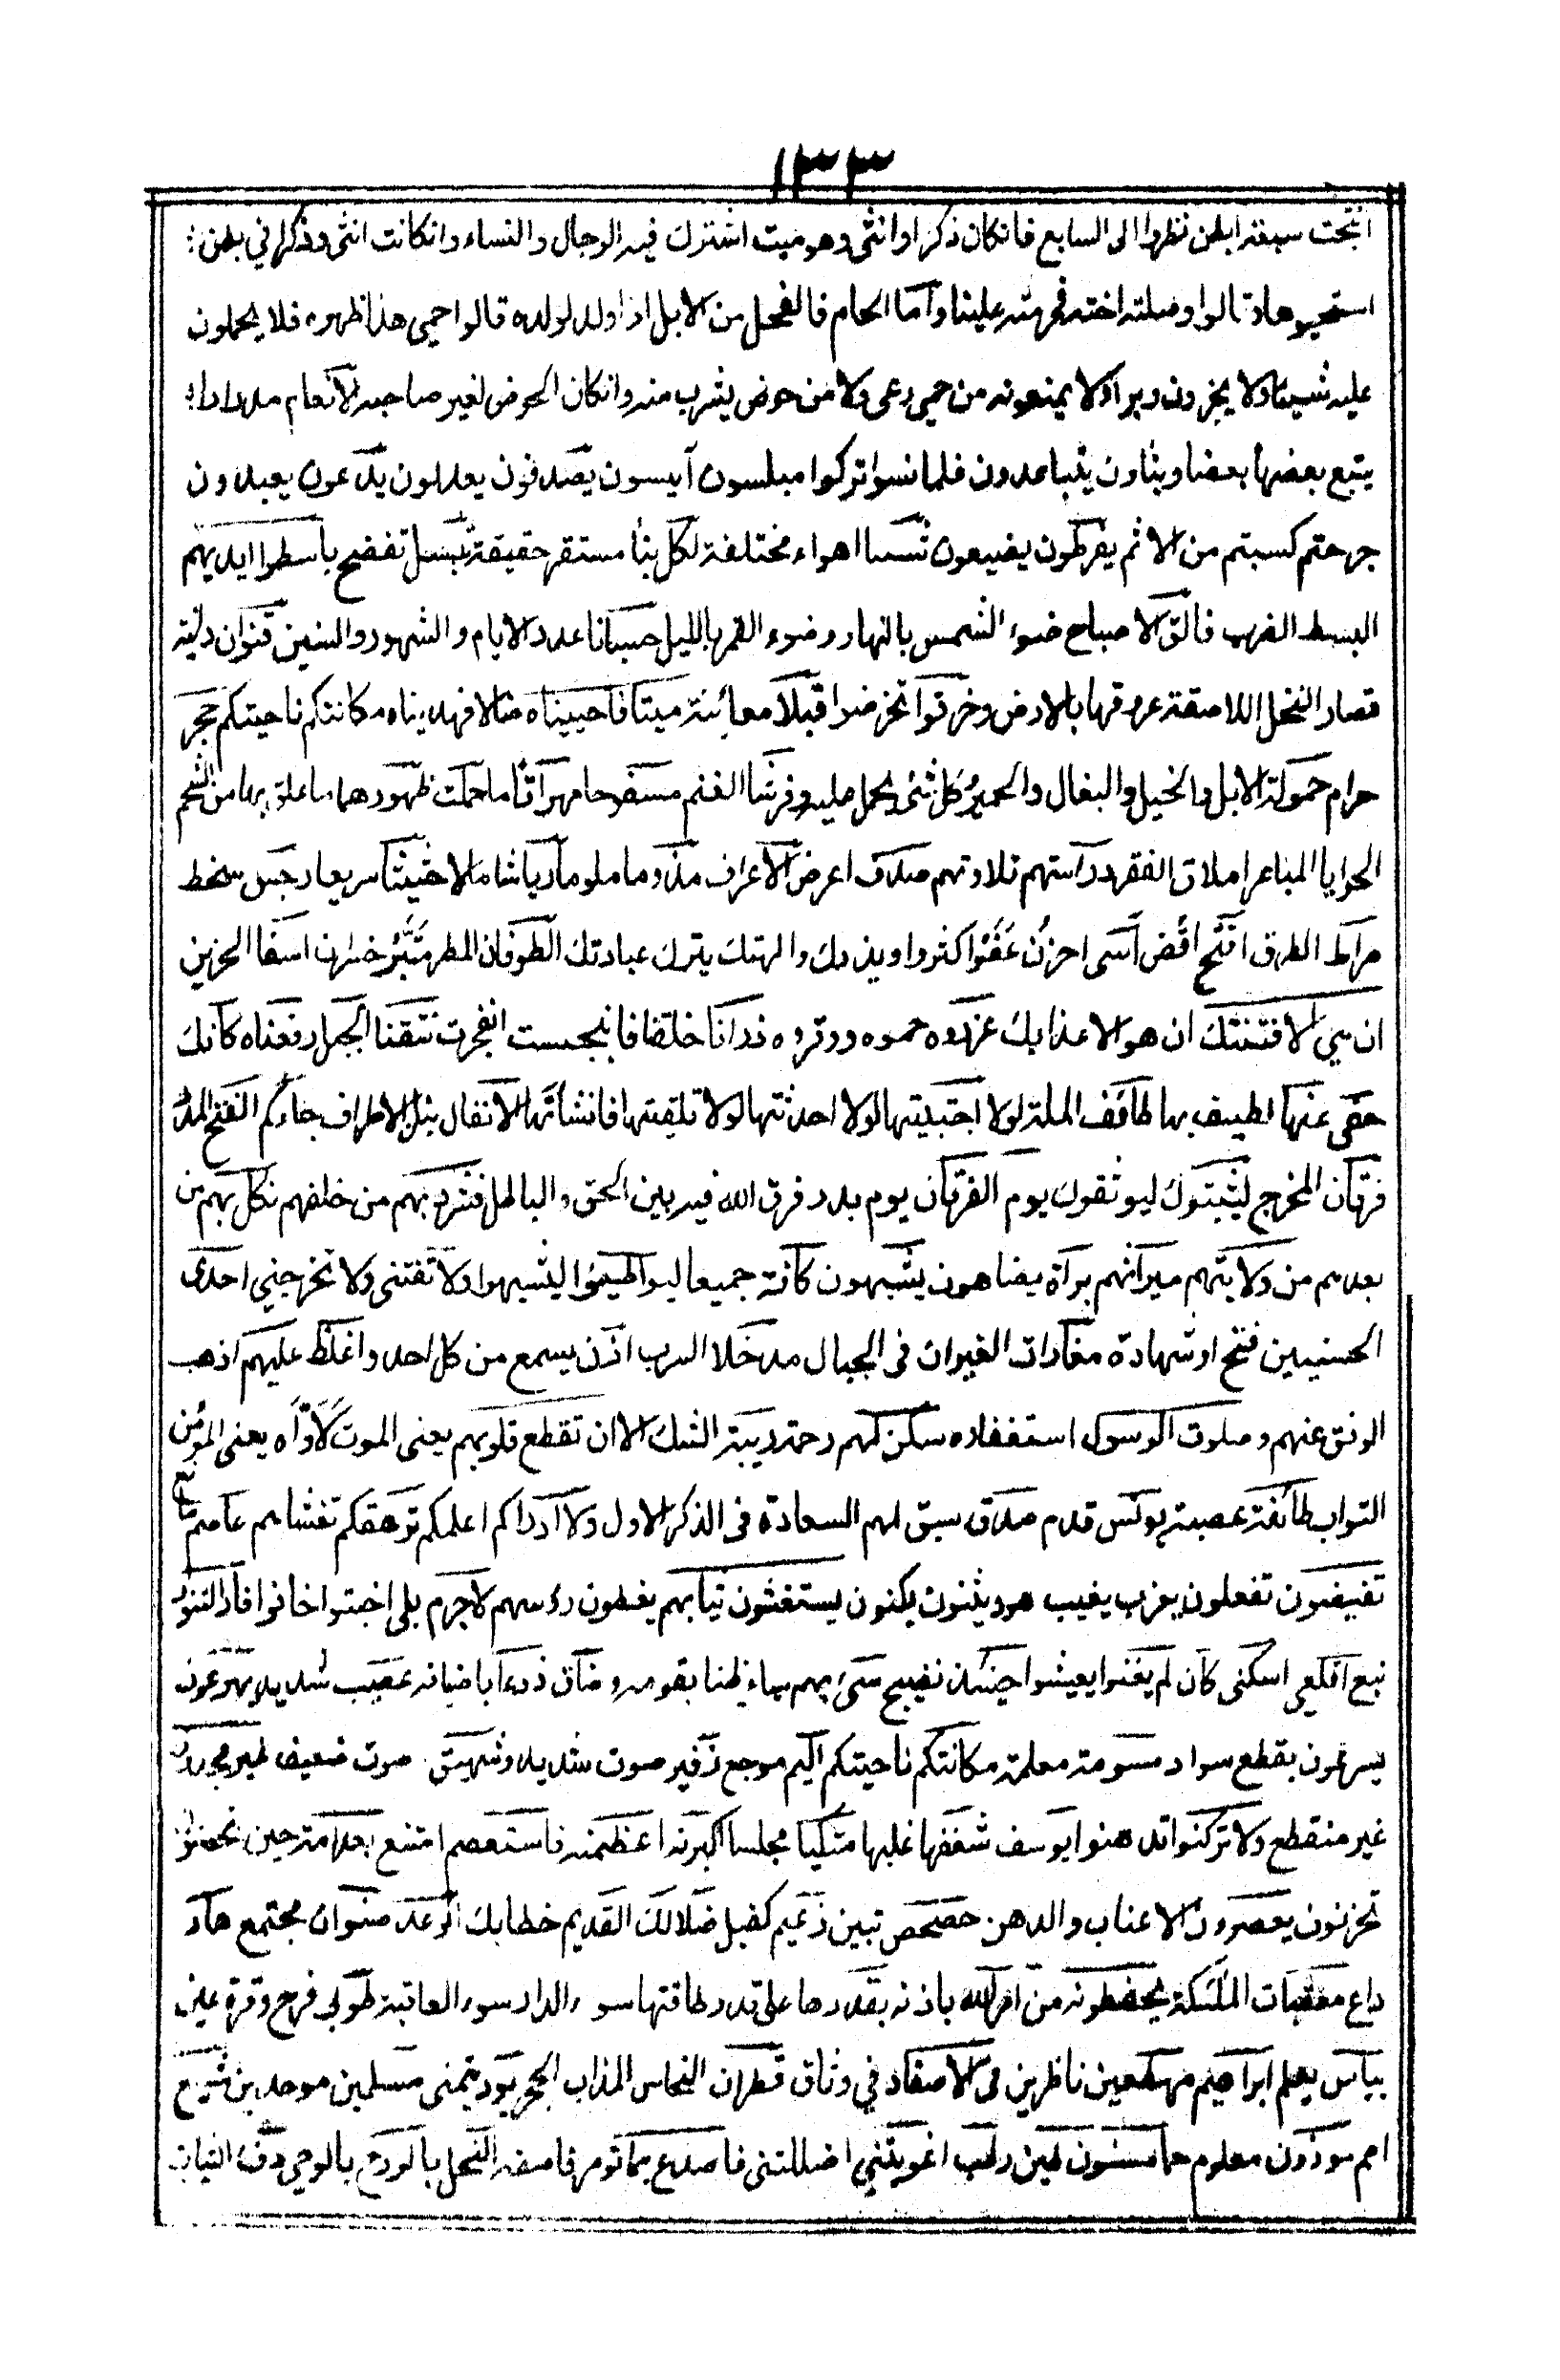 ١٣٣
انتجت سبعة ابطن نظروا الى السابع فانكان ذكرا او انثى وهو ميت اشترك فيه الرجال والنساء وانكانت انثى وذكرا في بطن
استحيوهما وقالوا وصلته اخته فحرمته علينا واما الحام فالفحل من الابل اذا ولد لولده قالوا حمى هذا ظهره فلا يحملون
عليه شيئا ولا يجزون وبرا ولا يمنعونه من حمى رعى ولا من حوض يشرب منه وانكان الحوض لغير صاحبه الانعام مدرارا
يتبع بعضها بعضا وينأون يتباعدون فلما نسوا تركوا مبلسون آيسون يصدفون يعدلون يدعون يعبدون
جرحتم كسبتم من الاثم يفرطون يضيعون شيعا اهواء مختلفة لكل نبأ مستقر حقيقة تبسل تفضح باسطوا ايديهم
البسط الضرب فالق الاصباح ضوء الشمس بالنهار وضوء القمر بالليل حسبانا عدد الايام والشهور والسنين قنوان دانية
قصار النخل اللاصقة عروقها بالارض وخرقوا تخرصوا قبلا معاينة ميتا فاحييناه ضالا فهديناه مكانتكم ناحيتكم حجر
حرام حمولة الابل والخيل والبغال والحمير وكل شئ يحمل عليه وفرشا الغنم مسفوحا مهراقا ما حملت ظهورهما ما علق بها من الشحم
الحوايا المباعر املاق الفقر دراستهم تلاوتهم صدف اعرض الاعراف مذؤما ملوما ريشا مالا حثيثا سريعا رجس سخط
صراط الطرق افتح اقض آسى احزن عفوا كثروا ويذرك والهتك يترك عبادتك الطوفان المطر متبر خسران اسفا الحزين
ان هي الا فتنتك ان هو الا عذابك عزروه حموه ووقروه ذرأنا خلقنا فانبجست انفجرت نتقنا الجبل رفعناه كانك
حفى عنها لطيف بها طائف الملة لولا اجتبيتها لولا احدثتها لولا تلقيتها فانشأتها الانفال بنان الاطراف جاءكم الفتح المدد
فرقان المخرج ليثبتوك ليوثقوك يوم الفرقان يوم بدر فرق الله فيه بين الحق والباطل فشرد بهم من خلفهم نكل بهم من
بعدهم من ولايتهم ميراثهم براة يضاهون يشبهون كافة جميعا ليواطئوا ليشبهوا ولا تفتنى ولا تخرجني احدى
الحسنيين فتح او شهادة مغارات الغيران فى الجبال مدخلا السرب اذن يسمع من كل احد واغلظ عليهم اذهب
الرفق عنهم وصلوت الرسول استغفاره سكن لهم رحمة ريبة الشك الا ان تقطع قلوبهم يعنى الموت لاواه يعنى المؤمن
التواب طائفة عصبة يونس قدم صدق سبق لهم السعادة فى الذكر الاول ولا ادراكم اعلمكم ترهقكم تغشاهم عاصم مانع
تفيضون تفعلون يعزب يغيب هود يثنون يكنون يستغشون ثيابهم يغطون رؤسهم لا جرم بلى اخبتوا خافوا فار التنور
نبع اقلعى اسكنى كان لم يغنوا يعيشوا حنيذ نضيج سئ بهم ساء ظنا بقومه وضاق ذرعا باضيافه عصيب شديد يهرعون
يسرعون بقطع سواد مسومة معلمة مكانتكم ناحيتكم اليم موجع زفير صوت شديد وشهيق صوت ضعيف غير مجذوذ
غير منقطع ولا تركنوا تدهنوا يوسف شغفها غلبها متكيا مجلسا اكبرنه اعظمنه فاستعصم امتنع بعد امة حين تحصنون
تخزنون يعصرون الاعناب والدهن حصحص تبين زعيم كفيل ضلالك القديم خطابك الرعد صنوان مجتمع هاد
داع معقبات الملئكة يحفظونه من امر الله باذنه بقدرها على قدر طاقتها سوء الدار سوء العاقبة طوبى فرح وقرة عين
ييأس يعلم ابراهيم مهطعين ناظرين فى الاصفاد في وثاق قطران النحاس المذاب الحجر يود يتمنى مسلمين موحدين شيع
امم موزون معلوم حمأ مسنون طين رطب اغويتني اضللتنى فاصدع بما تومر فامضه النحل بالروح بالوحي دفء الثياب